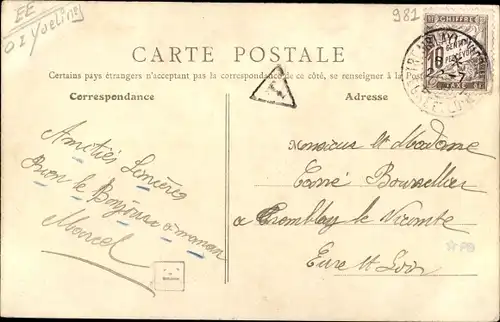 EE
01 Yveline
981
CHIFFRE
10
CENTIMES
A PERCEVOIR
TAXE
CARTE POSTALE
Certains pays étrangers n'acceptant pas la correspondance de ce côté, se renseigner à la Poste
Correspondance
Adresse
T
Amitiés Sincères
Bien le Bonjour a maman
Marcel
Monsieur et Madame
Bourrellier
a Tremblay le Vicomte
Eure et Loir